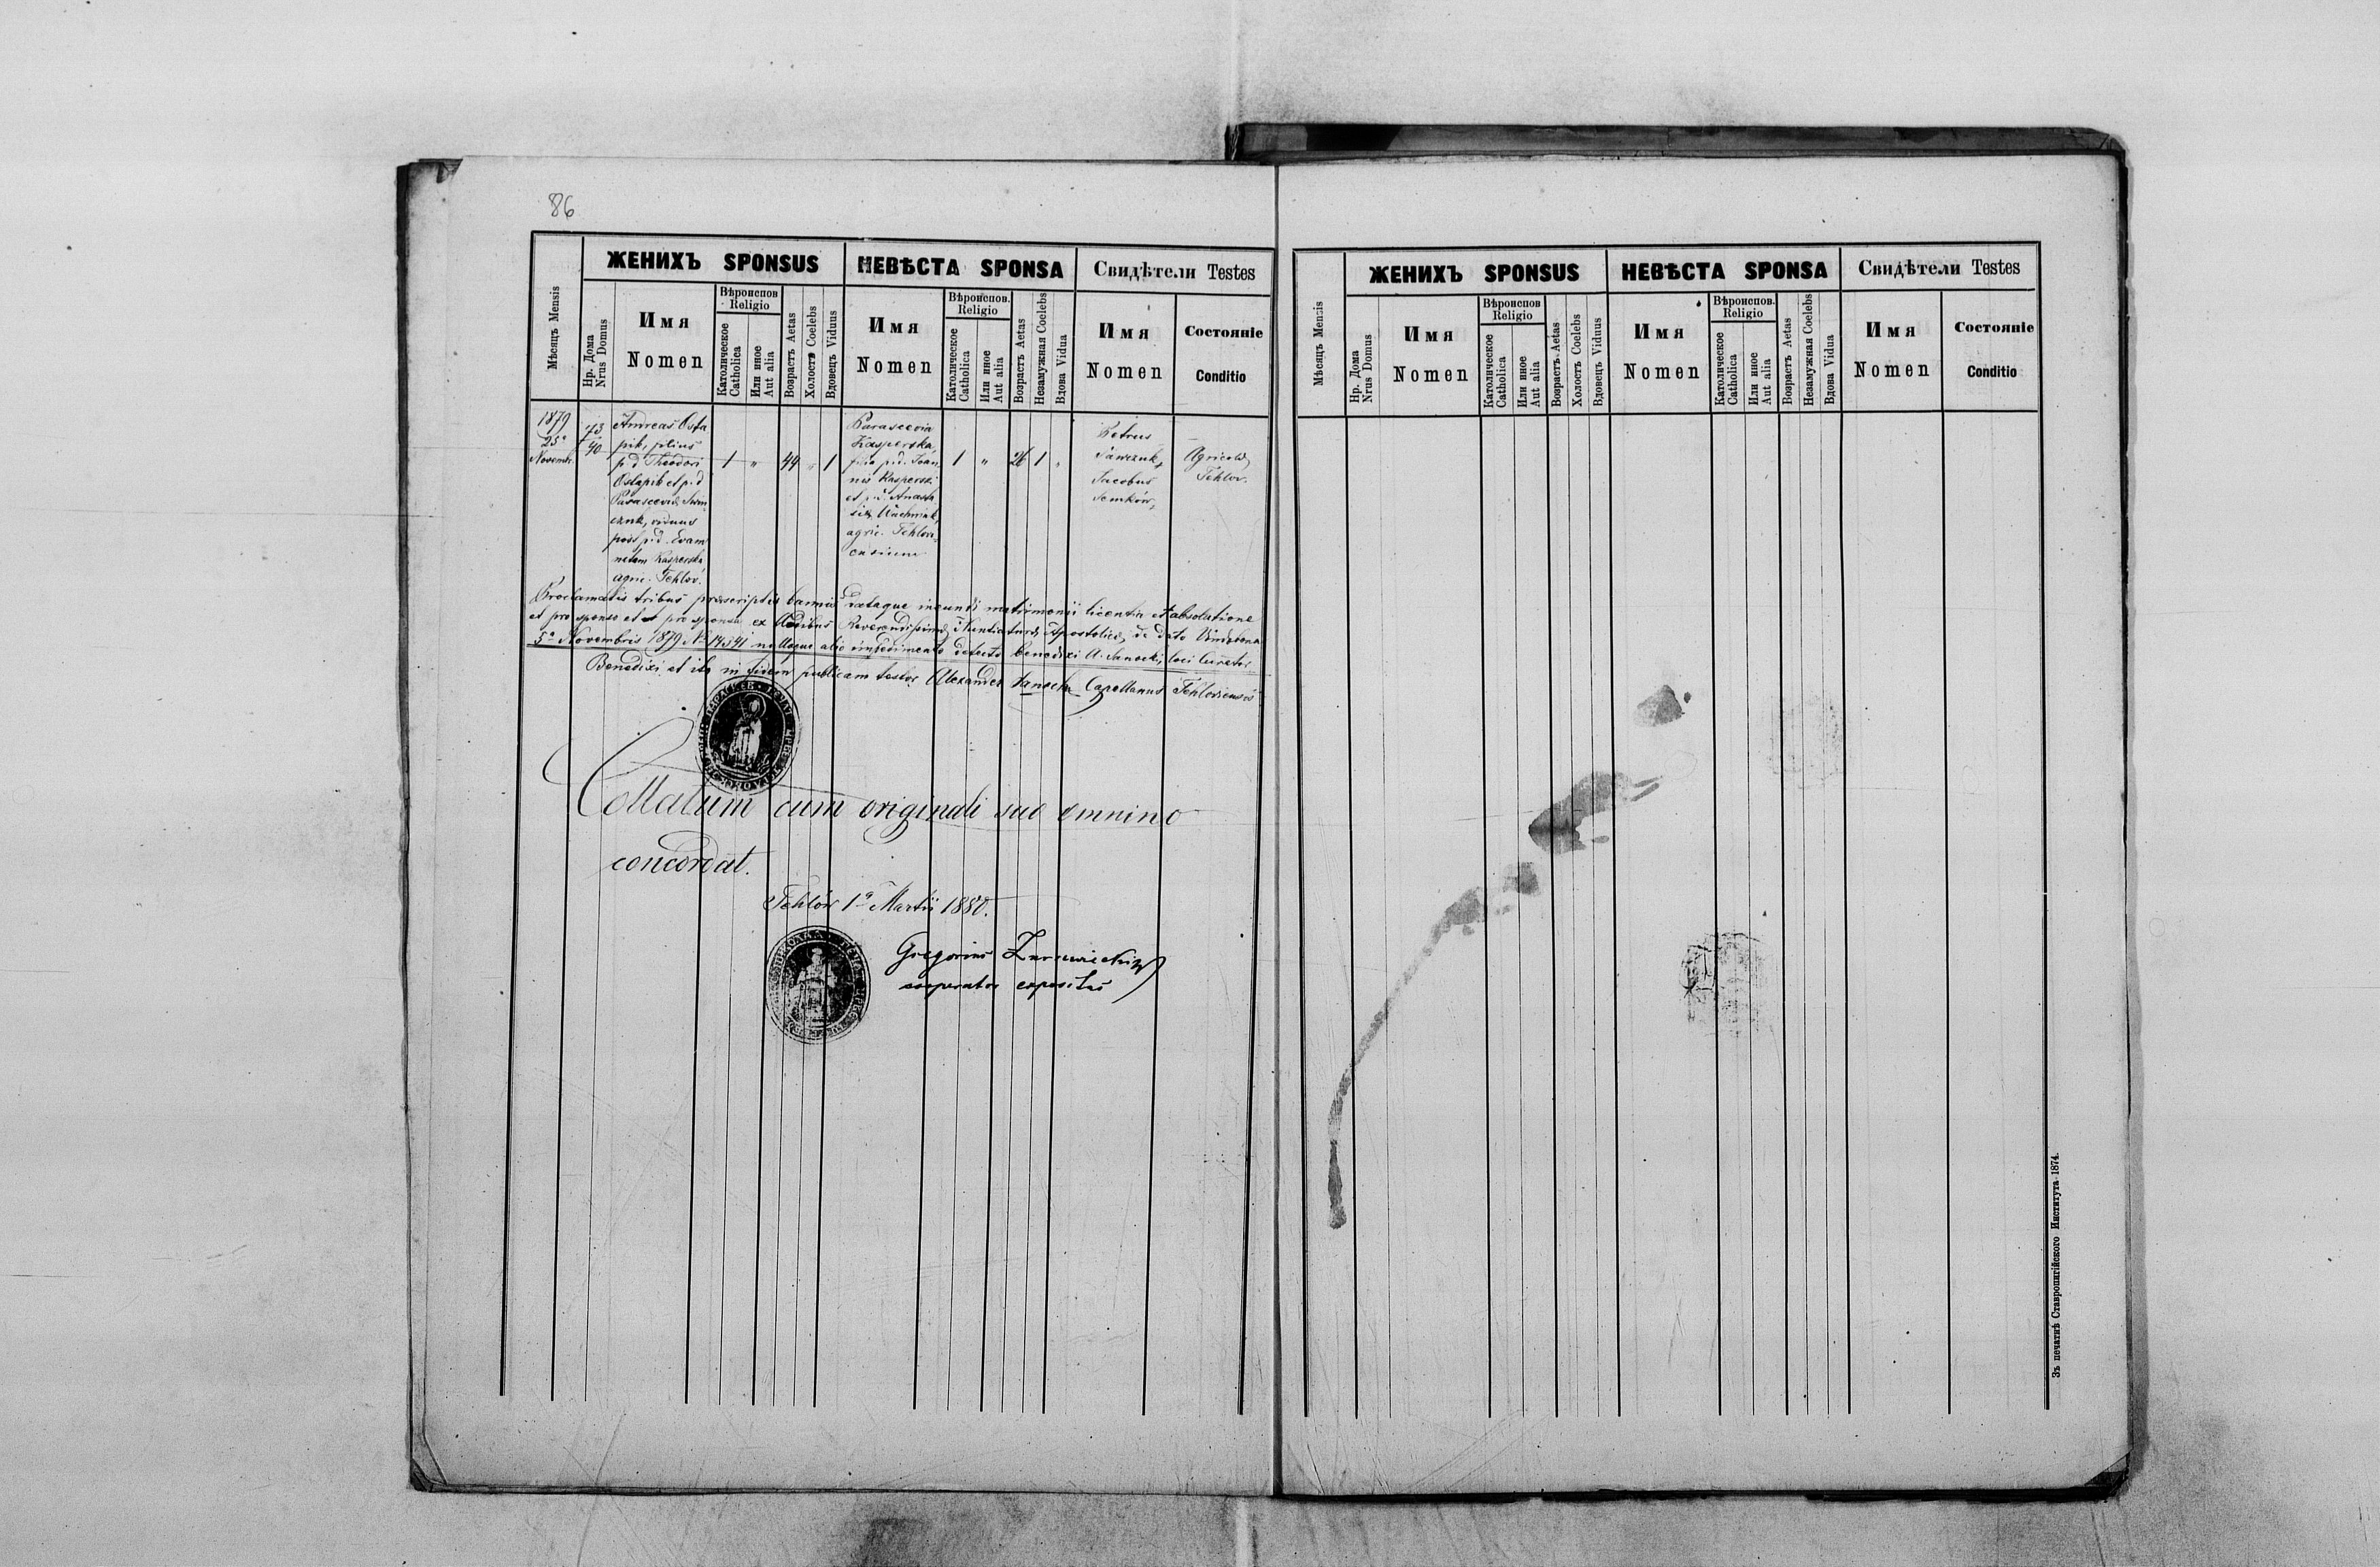 86
ЖЕНИХЪ SPONSUS
НЕВѢСТА SPONSA
Свидѣтели Testes
Мѣсяцъ Mensis
Нр. Дома
Nrus Domus
Имя
Nomen
Вѣроиспов
Religio
Католическое
Catholica
Или иное
Aut alia
Возрастъ Aetas
Холостъ Coelebs
Вдовецъ Viduus
Имя
Nomen
Вѣроиспов.
Religio
Католическое
Catholica
Или иное
Aut alia
Возрастъ Aetas
Незамужная Coelebs
Вдова Vidua
Имя
Nomen
Состояніе
Conditio
1879
25a
Novemb.
73
40
Andreas Osta
pik, filius
p. d. Theodori
Ostapik et p. d
Parasceviæ
viduus
post p. d.
Kasperska
agric. Tehlov.
1 " 44 " 1
Parascevia
Kasperska,
filia p. d. Joan
nis Kasperski
et p. d. Anasta
siæ
agric. Tehlovi-
ensium
1 " 26 1 "
Petrus
Sawczuk,
Jacobus
Semków,
Agricolæ
Tehlov.
Proclamatis tribus præscriptis bannis dataque ineundi matrimonii licentia et absolutione
et pro sponso et pro sponsa ex Ædibus Reverendissimæ Nuntiaturæ Apostolicæ de dato Vindobona
5a Novembris 1879 № 14341 nulloque alio impedimento detecto benedixi A. Sanocki, loci Curator
Benedixi et ita in fidem publicam testor Alexander Sanocki Capellanus Tehloviensis
Collatum cum originali suo omnino
concordat.
Tehlów 1a Martii 1880.
Gregorius
cooperator expositus
ЖЕНИХЪ SPONSUS
НЕВѢСТА SPONSA
Свидѣтели Testes
Мѣсяцъ Mensis
Нр. Дома
Nrus Domus
Имя
Nomen
Вѣроиспов.
Religio
Католическое
Catholica
Или иное
Aut alia
Возрастъ Aetas
Холостъ Coelebs
Вдовецъ Viduus
Имя
Nomen
Вѣроиспов.
Religio
Католическое
Catholica
Или иное
Aut alia
Возрастъ Aetas
Незамужная Coelebs
Вдова Vidua
Имя
Nomen
Состояніе
Conditio
Зъ печатнѣ Ставропигійского Института 1874.